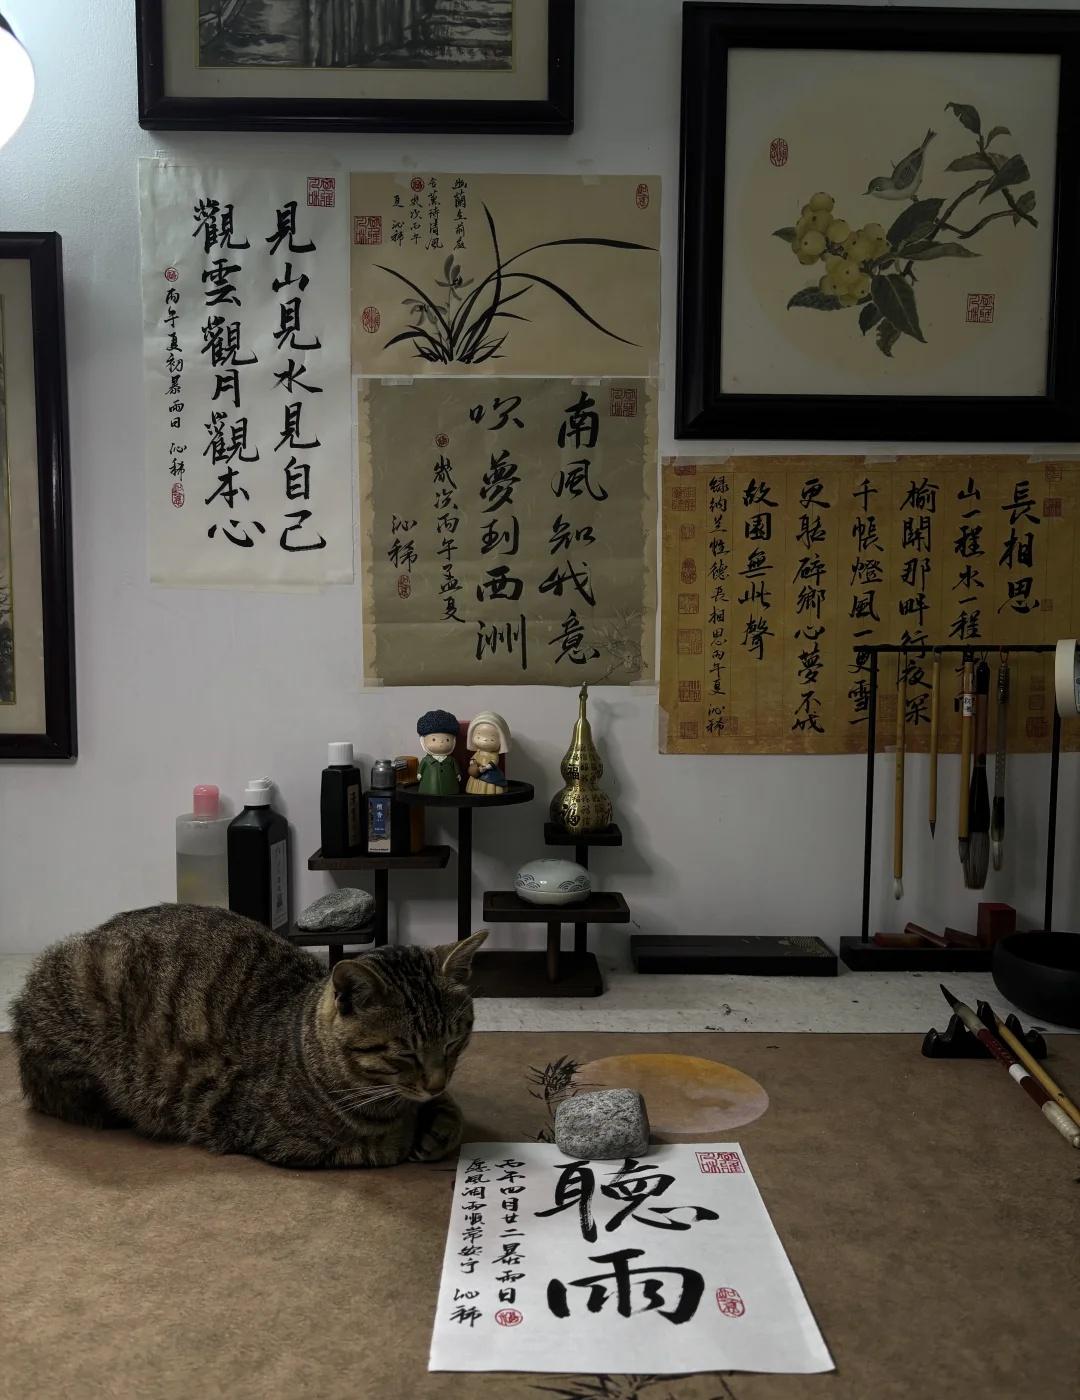 見山見水見自己
觀雲觀月觀本心
丙午夏初暴雨日 沁稀
幽蘭生前庭
含薰待清風
歲次丙午
夏 沁稀
南風知我意
吹夢到西洲
歲次丙午孟夏
沁稀
長相思
山一程水一程身
榆關那畔行夜深
千帳燈風一更雪一
更聒碎鄉心夢不成
故園無此聲
錄納蘭性德長相思丙午夏 沁稀
福
聽雨
丙午四月廿二暴雨日
願風調雨順常安寧 沁稀